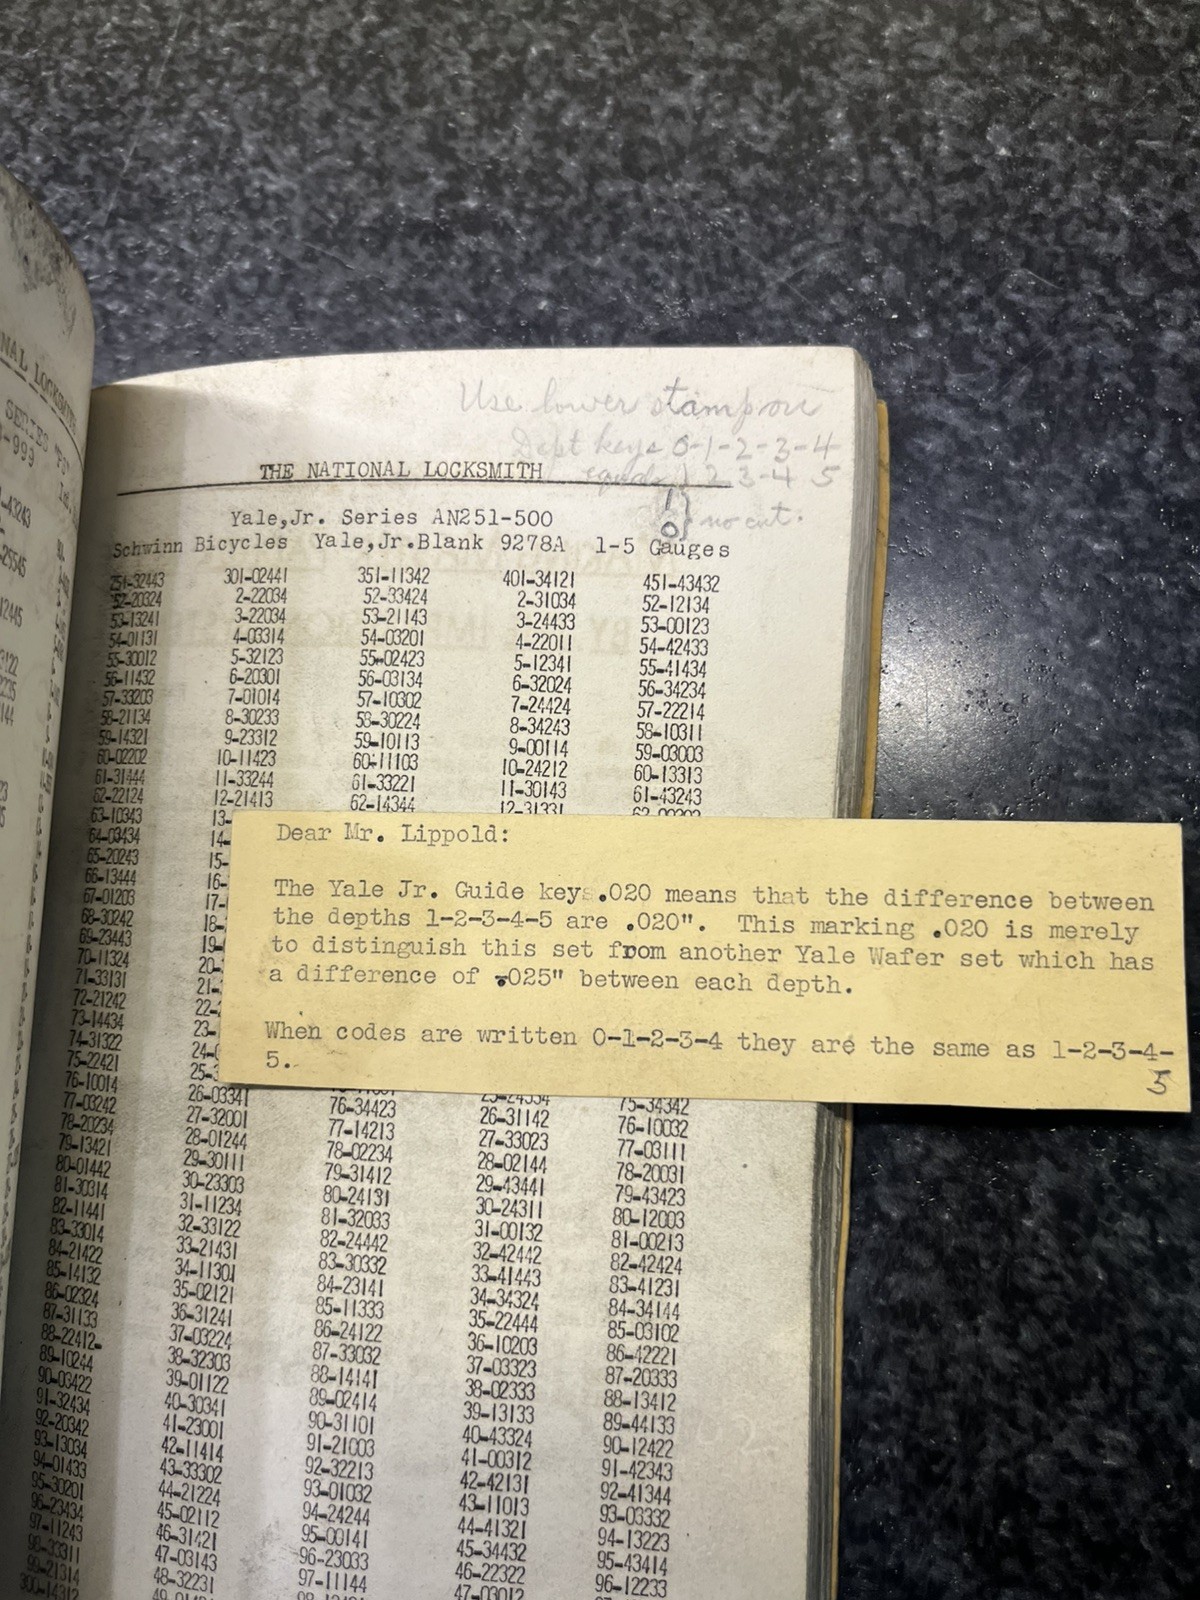 NAL LOCKSMITH
-999
-43243
THE NATIONAL LOCKSMITH
Use lower stamp on
Dept keys 0-1-2-3-4
equals 1 2 3-4 5
1
0 } no cut.
Yale,Jr. Series AN251-500
Schwinn Bicycles Yale,Jr.Blank 9278A 1-5 Gauges
251-32443
52-20324
53-13241
54-01131
55-30012
56-11432
57-33203
58-21134
59-14321
60-02202
61-31444
62-22124
63-10343
64-03434
65-20243
66-13444
67-01203
68-30242
69-23443
70-11324
71-33131
72-21242
73-14434
74-31322
75-22421
76-10014
77-03242
78-20234
79-13421
80-01442
81-30314
82-11441
83-33014
84-21422
85-14132
86-02324
87-31133
88-22412-
89-10244
90-03422
91-32434
92-20342
93-13034
94-01433
95-30201
96-23434
97-11243
98-33311
99-21314
300-14312
301-02441
2-22034
3-22034
4-03314
5-32123
6-20301
7-01014
8-30233
9-23312
10-11423
11-33244
12-21413
13-
14-
15-
16-
17-
18-
19-
20-
21-
22-
23-
24-
25-
26-03341
27-32001
28-01244
29-30111
30-23303
31-11234
32-33122
33-21431
34-11301
35-02121
36-31241
37-03224
38-32303
39-01122
40-30341
41-23001
42-11414
43-33302
44-21224
45-02112
46-31421
47-03143
48-32231
351-11342
52-33424
53-21143
54-03201
55-02423
56-03134
57-10302
58-30224
59-10113
60-11103
61-33221
62-14344
76-34423
77-14213
78-02234
79-31412
80-24131
81-32033
82-24442
83-30332
84-23141
85-11333
86-24122
87-33032
88-14141
89-02414
90-31101
91-21003
92-32213
93-01032
94-24244
95-00141
96-23033
97-11144
401-34121
2-31034
3-24433
4-22011
5-12341
6-32024
7-24424
8-34243
9-00114
10-24212
11-30143
12-31331
25-24334
26-31142
27-33023
28-02144
29-43441
30-24311
31-00132
32-42442
33-41443
34-34324
35-22444
36-10203
37-03323
38-02333
39-13133
40-43324
41-00312
42-42131
43-11013
44-41321
45-34432
46-22322
47-03012
451-43432
52-12134
53-00123
54-42433
55-41434
56-34234
57-22214
58-10311
59-03003
60-13313
61-43243
75-34342
76-10032
77-03111
78-20031
79-43423
80-12003
81-00213
82-42424
83-41231
84-34144
85-03102
86-42221
87-20333
88-13412
89-44133
90-12422
91-42343
92-41344
93-03332
94-13223
95-43414
96-12233
Dear Mr. Lippold:
The Yale Jr. Guide keys.020 means that the difference between
the depths 1-2-3-4-5 are .020". This marking .020 is merely
to distinguish this set from another Yale Wafer set which has
a difference of .025" between each depth.
When codes are written 0-1-2-3-4 they are the same as 1-2-3-4-
5.
5